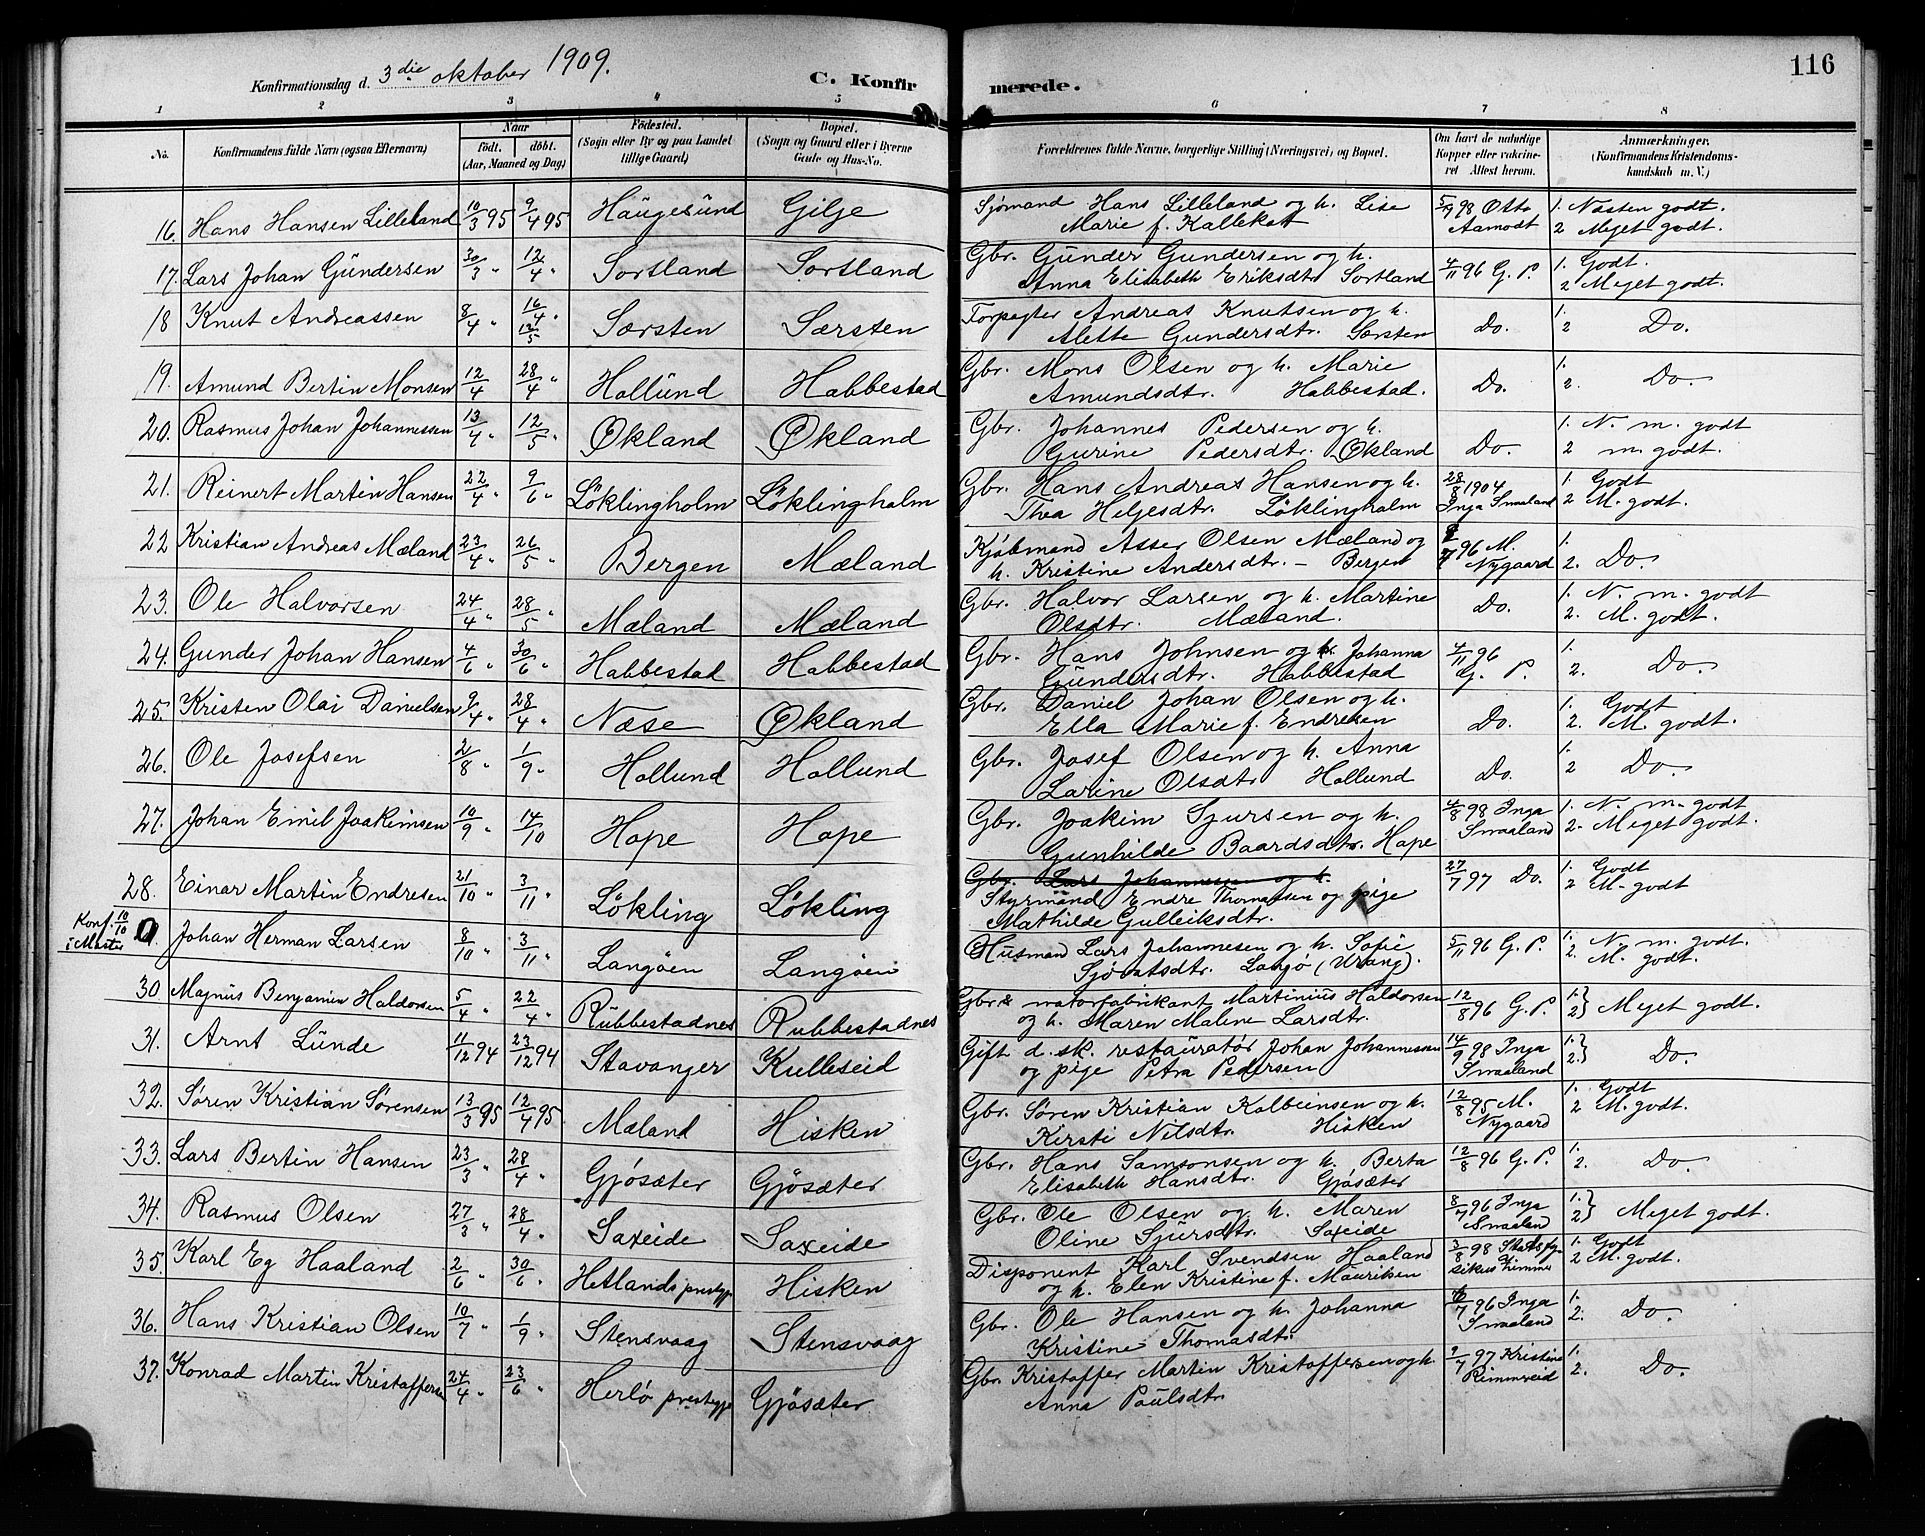 Konfirmationsdag d. 3die oktober 1909.
C. Konfirmerede.
116
1 2 3 4 5 6 7 8
No.
Konfirmandens fulde Navn (ogsaa Efternavn)
Naar
født. døbt.
(Aar, Maaned og Dag)
Födested.
(Sogn eller By og paa Landet
tillige Gaard)
Bopæl.
(Sogn og Gaard eller i Byerne
Gade og Hus-No.
Forældrenes fulde Navne, borgerlige Stilling (Næringsvei) og Bopæl.
Om havt de naturlige
Kopper eller vakcine-
ret Attest herom.
Anmærkninger.
(Konfirmandens Kristendoms-
kundskab m. V.)
16. Hans Hansen Lilleland 10/3 95 9/4 95 Haugesund Gilje Sjømand Hans Lilleland og h. Lise 5/9 98 Otto 1. Næsten godt.
Marie f. Kallekøt Aamodt 2 Meget godt.
17. Lars Johan Gundersen 30/3 " 12/4 " Sortland Sortland Gbr. Gunder Gundersen og h. 4/11 96 G. P. 1. Godt.
Anna Elisabeth Eriksdtr Sortland 2 Meget godt.
18 Knut Andreassen 8/4 " 16/4 12/5 " Særsten Særsten Torpagter Andreas Knutsen og h. Do. 1.
Alette Gundersdtr. Særsten 2 Do.
19. Amund Bertin Monsen 12/4 28/4 " Hollund Habbestad Gbr. Mons Olsen og h. Marie Do. 1.
Amundsdtr. Habbestad. 2. Do.
20. Rasmus Johan Johannessen 13/4 " 12/5 " Økland Økland Gbr. Johannes Pedersen og h. Do. 1. N. m. godt
Gurine Pedersdtr. Økland 2 m. godt.
21. Reinert Martin Hansen 22/4 " 9/6 " Løklingholm Løklingholm Gbr. Hans Andreas Hansen og h. 28/8 1904 1. Godt
Thea Heljesdtr. Løklingholm Inga Smaaland 2 M. godt.
22 Kristian Andreas Mæland 23/4 " 26/5 " Bergen Mæland Kjøbmand Asser Olsen Mæland og 96 M. 1.
h. Kristine Andersdtr. – Bergen Nygaard 2. Do.
23. Ole Halvorsen 24/4 " 28/5 " Mæland Mæland Gbr. Halvor Larsen og h. Martine Do. 1. N. m. godt
Olsdtr. Mæland. 2. M. godt.
24. Gunder Johan Hansen 4/6 " 30/6 " Habbestad Habbestad Gbr. Hans Johnsen og h. Johanna 4/11 96 1.
Gundersdtr. Habbestad G. P. 2. Do.
25. Kristen Olai Danielsen 9/4 " 28/4 " Næse Økland Gbr. Daniel Johan Olsen og h. Do. 1. Godt
Ella Marie f. Endresen 2. M. godt.
26. Ole Josefsen 2/8 " 1/9 " Hollund Hollund Gbr. Josef Olsen og h. Anna Do. 1.
Larine Olsdtr Hollund 2 Do.
27. Johan Emil Joakimsen 10/9 " 14/10 Hope Hope Gbr. Joakim Sjursen og h. 4/8 98 Inga 1. N. m. godt
Gunhilde Baardsdtr. Hope Smaaland 2. Meget godt.
28. Einar Martin Endresen 21/10 " 3/11 " Løkling Løkling Gbr. Lars Johannesen og h. 27/7 97 Do. 1. Godt
Styrmand Endre Thomassen og pige 2 M. godt
Mathilde Gulleiksdtr.
Konf. 10/10
i Moster
Johan Herman Larsen 8/10 " 3/11 " Langøen Langøen Husmand Lars Johannesen og h. Sofie 5/11 96 G. P. 1. N. m. godt.
Sjøvatsdtr. Langø (Urang). 2. M. godt.
30 Magnus Benjamin Haldorsen 5/4 " 22/4 " Rubbestadnes Rubbestadnes Gbr. & motorfabrikant Martinius Haldorsen 12/8 96 G. P. 1. } Meget godt.
og h. Maren Maline Larsdtr. 2
31. Arnt Lunde 11/12 94 23/12 94 Stavanger Kulleseid Gift d. sk. restauratør Johan Johannessen 14/9 98 Inga 1. }
og pige Petra Pedersen Smaaland 2. Do.
32. Søren Kristian Sørensen 13/3 95 12/4 95 Mæland Hisken Gbr. Søren Kristian Kolbeinsen og h. 12/8 95 M. 1. Godt
Kersti Nilsdtr. Hisken Nygaard 2 M. godt.
33. Lars Bertin Hansen 23/3 " 28/4 " Gjøsæter Gjøsæter Gbr. Hans Samsonsen og h. Berta 12/8 96 G. P. 1.
Elisabeth Hansdtr. Gjøsæter 2. Do.
34. Rasmus Olsen 27/3 " 28/4 " Saxeide Saxeide Gbr. Ole Olsen og h. Maren 8/7 96 Inga 1. } Meget godt.
Oline Sjursdtr. Saxeide Smaaland 2
35. Karl Eg Haaland 2/6 " 30/6 " Hetlands prestegj. Hisken Disponent Karl Svendsen Haaland 3/8 98 Statsfy- 1. Godt
og h. Elen Kristine f. Mauritzen sikus 2 M. godt.
36. Hans Kristian Olsen 10/7 " 1/9 " Stensvaag Stensvaag Gbr. Ole Hansen og h. Johanna 96 Inga 1.
Kristine Thomasdtr. Smaaland 2. Do.
37. Konrad Martin Kristoffersen 24/4 " 23/6 " Herlø prestegj. Gjøsæter Gbr. Kristoffer Martin Kristoffersen og h. 9/7 97 Kristine 1.
Anna Poulsdtr. Rimmereid 2. Do.